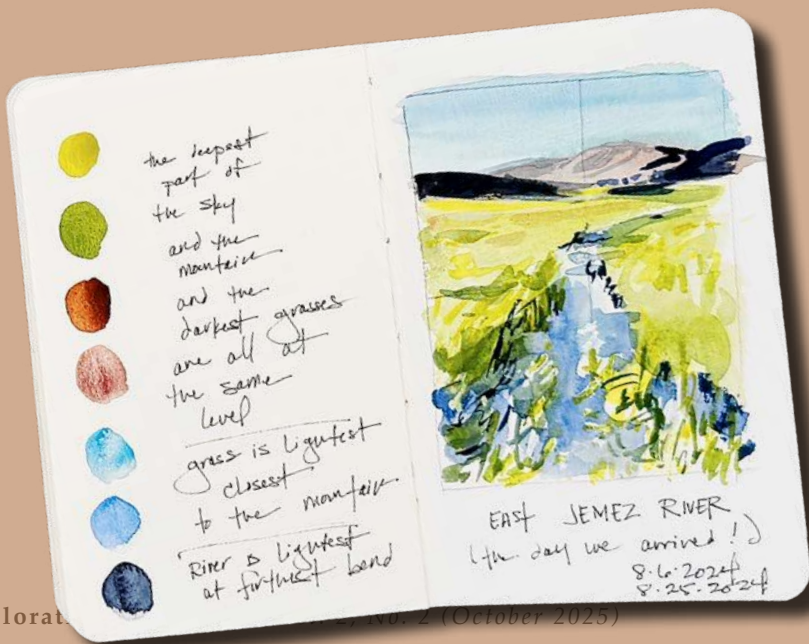 the deepest
part of
the sky
and the
mountain
and the
darkest grasses
are all at
the same
level
grass is lightest
closest
to the mountain
River is lightest
at furthest bend
EAST JEMEZ RIVER
(the day we arrived!)
8.6.2024
8.25.2024
lorat 2, No. 2 (October 2025)